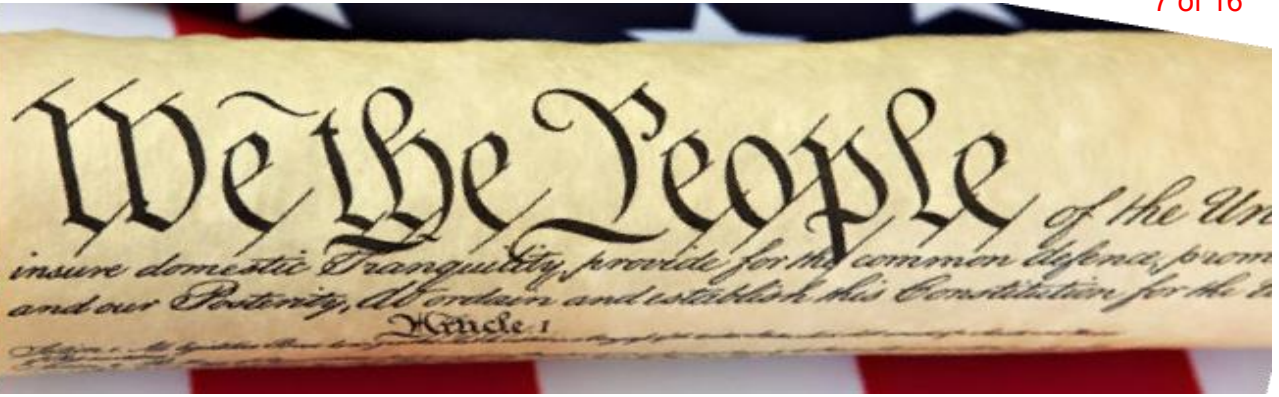 7 of 16
We the People of the Un
insure domestic Tranquility, provide for the common defence, prom
and our Posterity, do ordain and establish this Constitution for the
Article I